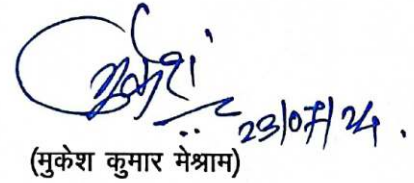 मुकेश
23/07/24.
(मुकेश कुमार मेश्राम)